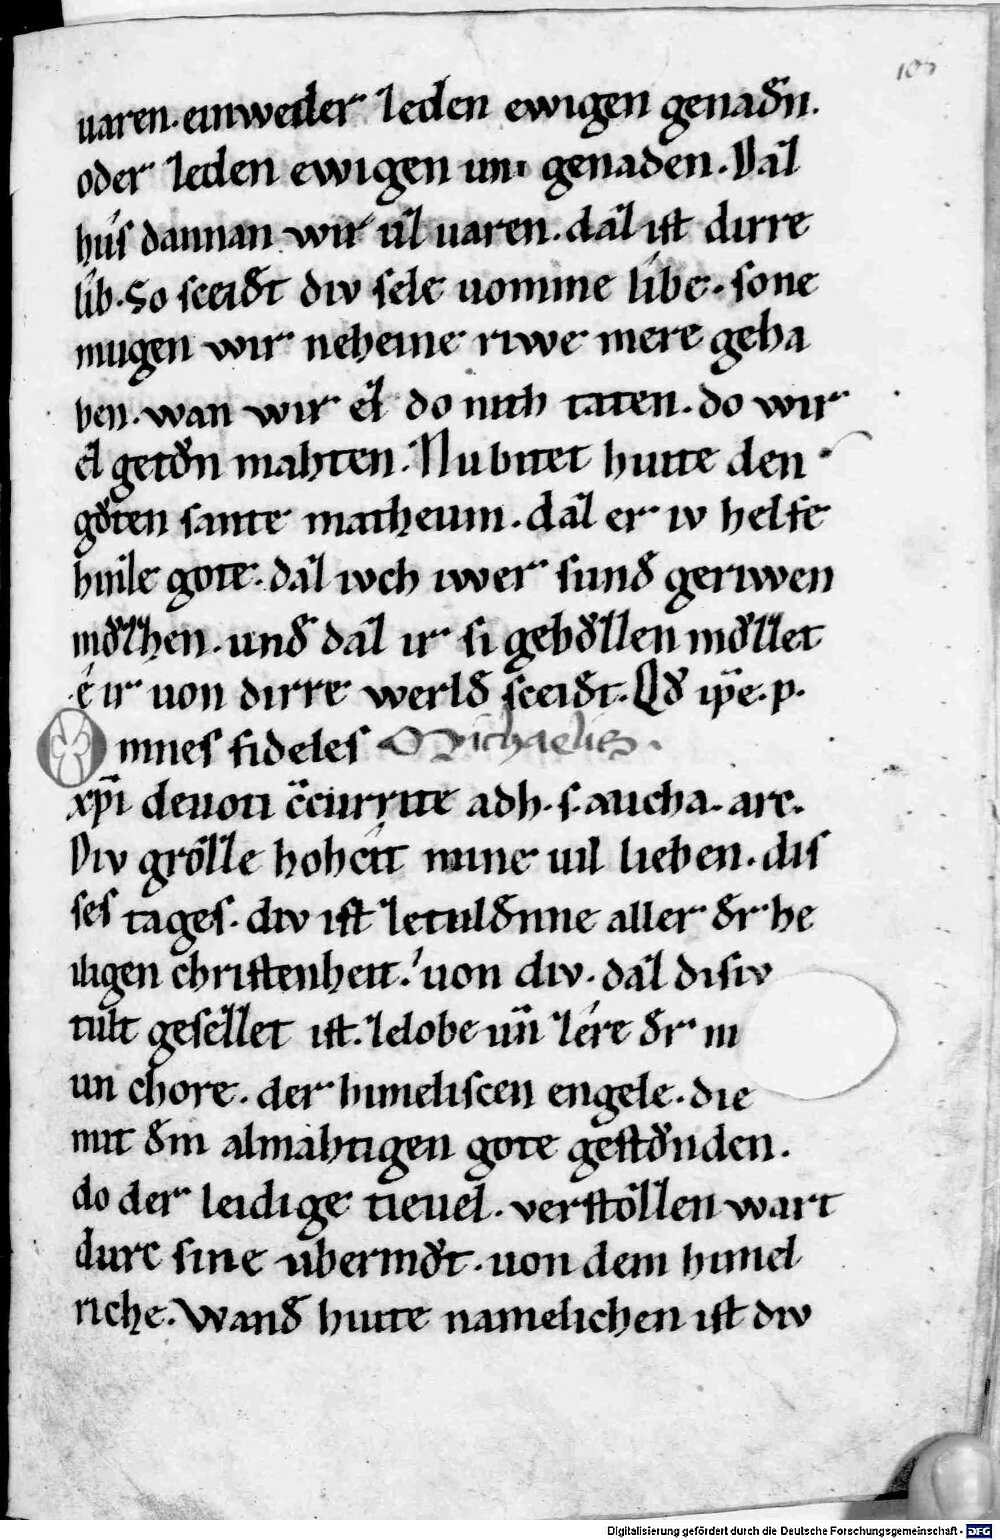 105
uaren. einweder zeden ewigen genadn̄.
oder zeden ewigen un genaden. Daz
hus dannan wir uz uaren. daz ist dirre
lib. So sceidet div sele uomme libe. sone
mugen wir neheine riwe mere geha
ben. wan wir ez do nith taten. do wir
ez getůn mahten. Nu bitet hiute den
gůten sante matheum. daz er iv helfe
hinze gote. daz iwch iwer sund̄ geriwen
můzhen. und̄ daz ir si gebůzzen můzzet
e ir uon dirre werld̄ sceid̄t. Qd̄ ip̄e. p.
Omnes fideles Michaelis.
xp̄i deuoti c̄currite adh. s. Micha. arc.
Div grozze hoheit mine uil lieben. dis
ses tages. div ist zetuld̄nne aller d̄r he
iligen christenheit. uon div. daz disiv
tult gesezzet ist. zelobe un̄ zere d̄r ni
un chore. der himeliscen engele. die
mit d̄m almahtigen gote gestůnden.
do der leidige tieuel. verstozzen wart
durc sine ubermůt. uon dem himel
riche. Wand̄ hiute namelichen ist div
Digitalisierung gefördert durch die Deutsche Forschungsgemeinschaft - DFG